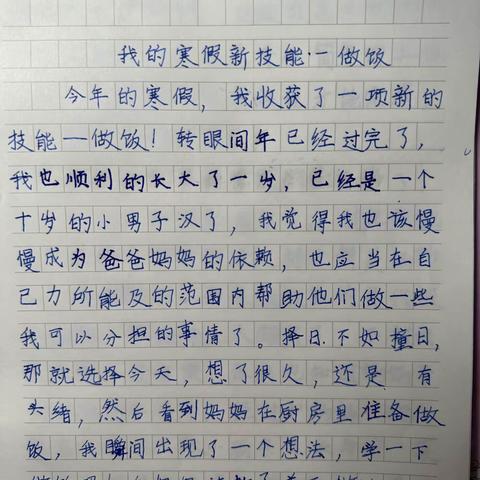 我的寒假新技能·一做饭
今年的寒假，我收获了一项新的
技能一一做饭！转眼间年已经过完了，
我也顺利的长大了一岁，已经是一个
十岁的小男子汉了，我觉得我也该慢
慢成为爸爸妈妈的依赖，也应当在自
己力所能及的范围内帮助他们做一些
我可以分担的事情了。择日不如撞日，
那就选择今天，想了很久，还是 有
头绪，然后看到妈妈在厨房里准备做
饭，我瞬间出现了一个想法，学一下